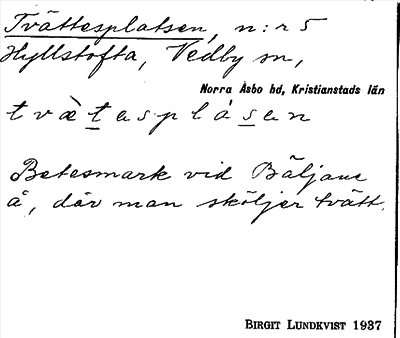 Tvättesplatsen, n:r 5
Hyllstofta, Vedby sn,
Norra Åsbo hd, Kristianstads län
tvæ̀tesplásen
Betesmark vid Bäljane
å, där man sköljer tvätt.
BIRGIT LUNDKVIST 1937